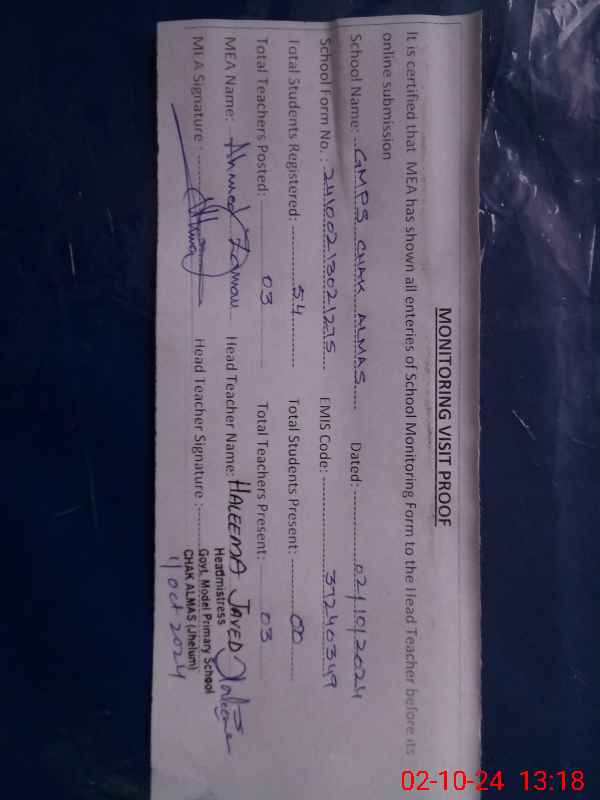 MONITORING VISIT PROOF
It is certified that MEA has shown all enteries of School Monitoring Form to the Head Teacher before its
online submission
School Name: GMPS CHAK ALMAS Dated: 02/10/2024
School Form No.: 24100213021275 EMIS Code: 37240349
Total Students Registered: 54 Total Students Present: 00
Total Teachers Posted: 03 Total Teachers Present: 03
MEA Name: Ahmed Head Teacher Name: HALEEMA JAVED
MEA Signature: Head Teacher Signature:
Headmistress
Govt. Model Primary School
CHAK ALMAS (Jhelum)
Oct 2024
02-10-24 13:18